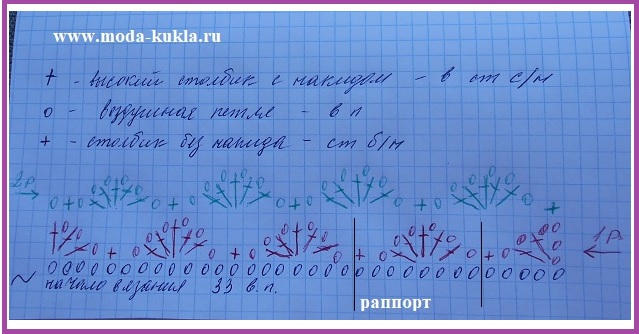 www.moda-kukla.ru
† - высокий столбик с накидом - в ст с/н
о - воздушная петля - в п
+ - столбик без накида - ст б/н
2р.
1р.
начало вязания 33 в.п.
раппорт